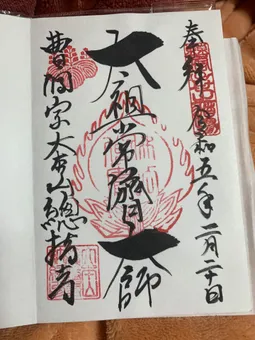 奉拝 令和五年二月二十日
太祖常濟大師
曹洞宗大本山總持寺